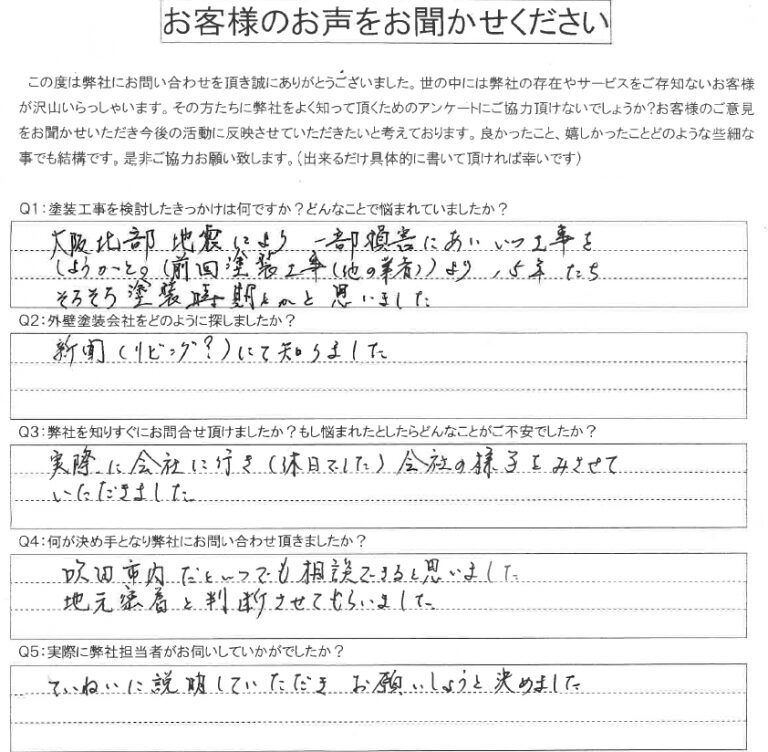 お客様のお声をお聞かせください
この度は弊社にお問い合わせを頂き誠にありがとうございました。世の中には弊社の存在やサービスをご存知ないお客様
が沢山いらっしゃいます。その方たちに弊社をよく知って頂くためのアンケートにご協力頂けないでしょうか?お客様のご意見
をお聞かせいただき今後の活動に反映させていただきたいと考えております。良かったこと、嬉しかったことどのような些細な
事でも結構です。是非ご協力お願い致します。(出来るだけ具体的に書いて頂ければ幸いです)
Q1:塗装工事を検討したきっかけは何ですか?どんなことで悩まれていましたか?
大阪北部地震により 一部損害にあい いつ工事を
しようかと。(前回塗装工事(他の業者))より 15年たち
そろそろ塗装時期とかと思いました
Q2:外壁塗装会社をどのように探しましたか?
新聞(リビング?)にて知りました
Q3:弊社を知りすぐにお問合せ頂けましたか?もし悩まれたとしたらどんなことがご不安でしたか?
実際に会社に行き(休日でした)会社の様子をみさせて
いただきました
Q4:何が決め手となり弊社にお問い合わせ頂きましたか?
吹田市内だといつでも相談できると思いました
地元密着と判断させてもらいました
Q5:実際に弊社担当者がお伺いしていかがでしたか?
ていねいに説明していただき お願いしようと決めました